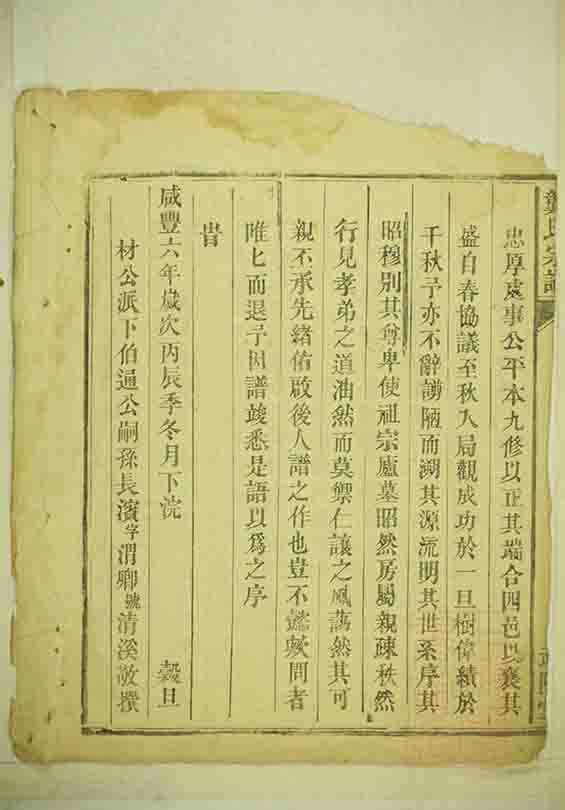 龔氏宗譜
忠厚處事公平本九修以正其端合四邑以襄其
盛自春協議至秋入局觀成功於一旦樹偉績於
千秋予亦不辭謭陋而溯其源流明其世系序其
昭穆別其尊卑使祖宗廬墓昭然房屬親疎秩然
行見孝弟之道油然而莫禦仁讓之風藹然其可
親丕承先緒佑啟後人譜之作也豈不懿歟問者
唯匕而退予因譜竣悉是語以爲之序
旹
咸豐六年歲次丙辰季冬月下浣 穀旦
材公派下伯逼公嗣孫長濱字渭卿號清溪敬撰